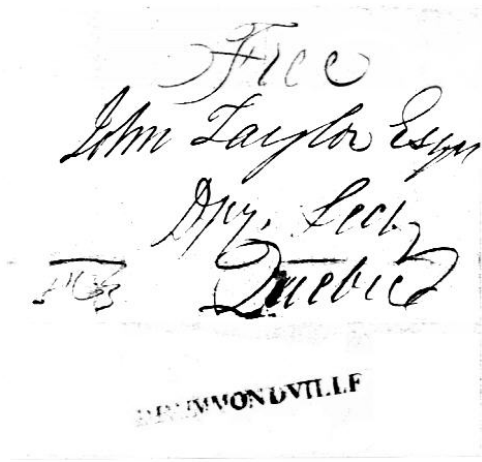 Free
John Taylor Esqr
Dpy. Secy
Quebec
DRUMMONDVILLE